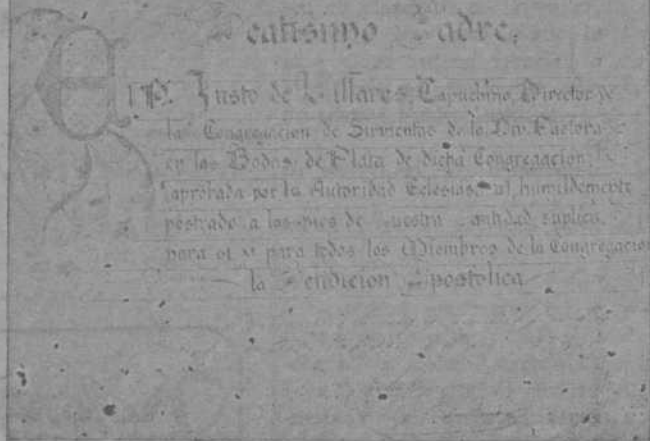 Beatisimo Padre,
El P. Justo de Villares, Capuchino, Director de
la Congregacion de Sirvientas de la Div. Pastora
en las Bodas de Plata de dicha Congregacion,
aprobada por la Autoridad Eclesiastical, humildemente
postrado a los pies de Vuestra Santidad suplica
para si y para todos los Miembros de la Congregacion
la Bendicion Apostolica